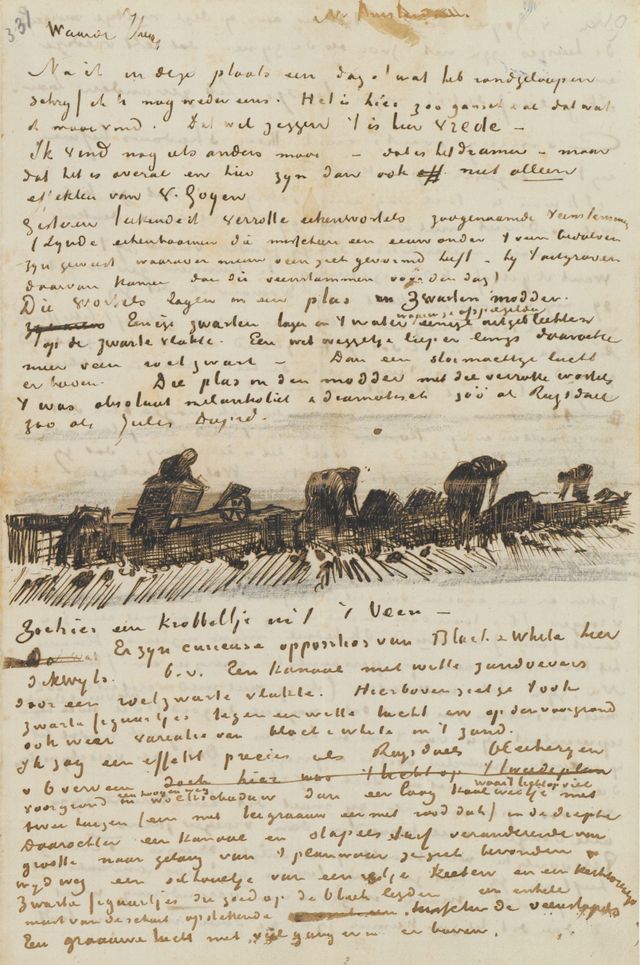 331
N. Amsterdam.
Waarde Theo,
Na ik in deze plaats een dag of wat heb rondgeloopen
schrijf ik U nog weder eens. Het is hier zoo gansch & al dat wat
ik mooi vond. Dat wil zeggen 't is hier Vrede –
Ik vind nog iets anders mooi – dat is het drama – maar
dat het is overal en hier zijn dan ook niet alleen
effekten van V. Goyen
Gisteren teekende ik verrotte eikenwortels zoogenaamde veenstammen
zijnde eikenboomen die misschien een eeuw onder 't veen bedolven
zijn geweest waarover nieuw veen zich gevormd heeft – bij 't uitgraven
daarvan komen dan die veenstammen voor den dag
Die wortels lagen in een plas in zwarten modder.
Eenige zwarten lagen in 't water waarin ze spiegelden eenige uitgebleekten
op de zwarte vlakte. Een wit weggetje liep er langs daarachter
meer veen roetzwart – Dan een stormachtige lucht
erboven. Die plas in den modder met die verrotte wortels
't was absoluut melankoliek & dramatisch zoo als Ruysdael
zoo als Jules Dupré.
Ziehier een krabbeltje uit 't veen –
Er zijn curieuse opposities van Black & White hier
dikwijls. b.v. Een kanaal met witte zandoevers
door een roetzwarte vlakte. Hierboven ziet ge 't ook
zwarte figuurtjes tegen een witte lucht en op den voorgrond
ook weer variatie van black & white in 't zand.
Ik zag een effekt precies als Ruysdaels bleekerijen
v Overveen
voorgrond een weg in wolkschaduw dan een laag kaal weitje met waar licht op viel
twee huizen (een met leigraauw een met rood dak) in de diepte
Daarachter een kanaal en stapels turf veranderende van
grootte naar gelang van 't plan waar ze zich bevonden
wijd weg een silhouetje van een rijtje keeten en een kerktorentje
zwarte figuurtjes die goed op de bleek leken en enkele
mast van de schuit opstekende tusschen de veenstapels
Een graauwe lucht met veel gang er in erboven.